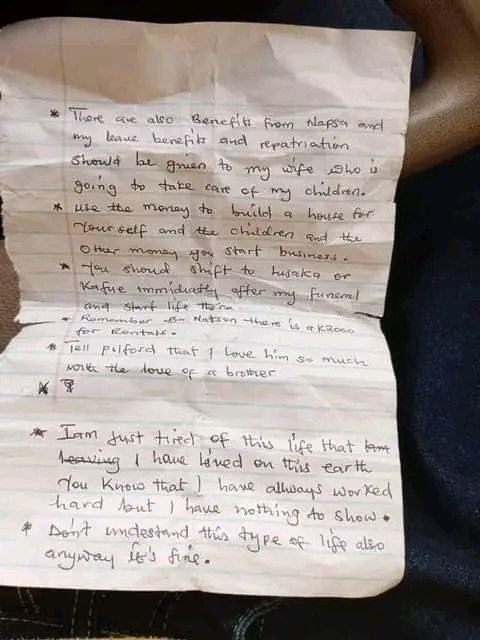 * There are also Benefits from Napsa and
my leave benefits and repatriation
should be given to my wife who is
going to take care of my children.
* use the money to build a house for
Your self and the children and the
Other money you start business.
* You shoud shift to Lusaka or
Kafue immidiatly after my funeral
and start life there
* Remember Ba Watson there is a K2000
for Rentals.
* Tell pilford that I love him so much
with the love of a brother
* I am just tired of this life that
leaving I have lived on this earth
You know that I have allways worked
hard but I have nothing to show.
* Don't undestand this type of life also
anyway it's fine.